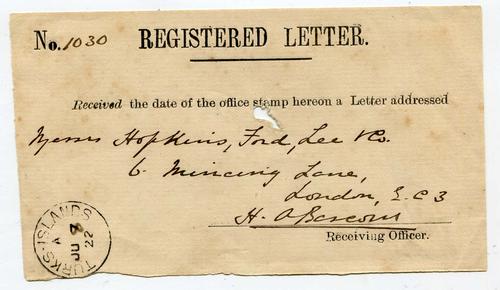 No. 1030 REGISTERED LETTER.
Received the date of the office stamp hereon a Letter addressed
Messrs Hopkins, Ford, Lee & Co.
6. Mincing Lane,
London, E.C 3
H.
Receiving Officer.
TURKS-ISLANDS
A
JU 7
22